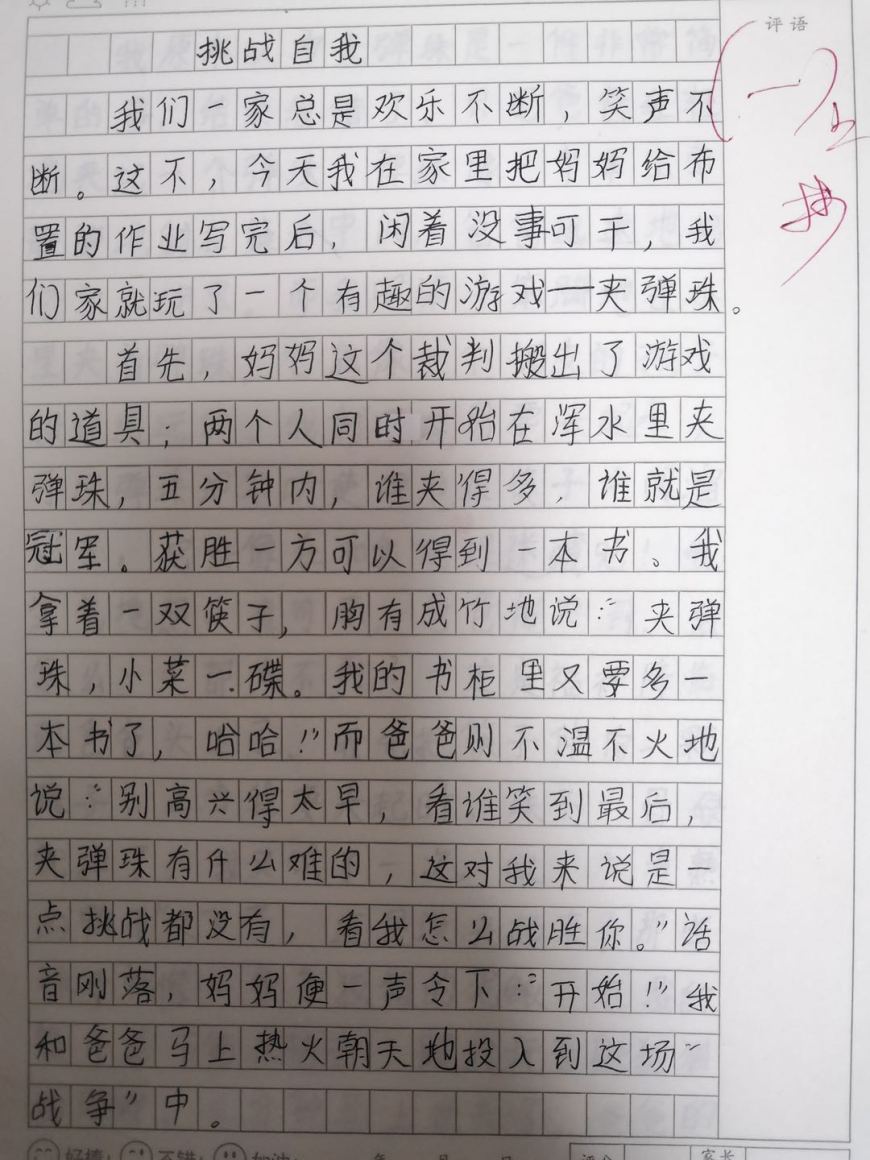 评语
挑战自我
我们一家总是欢乐不断，笑声不
断。这不，今天我在家里把妈妈给布
置的作业写完后，闲着没事可干，我
们家就玩了一个有趣的游戏—夹弹珠。
首先，妈妈这个裁判搬出了游戏
的道具；两个人同时开始在浑水里夹
弹珠，五分钟内，谁夹得多，谁就是
冠军。获胜一方可以得到一本书。我
拿着一双筷子，胸有成竹地说：“夹弹
珠，小菜一碟。我的书柜里又要多一
本书了，哈哈！”而爸爸则不温不火地
说：“别高兴得太早，看谁笑到最后，
夹弹珠有什么难的，这对我来说是一
点挑战都没有，看我怎么战胜你。”话
音刚落，妈妈便一声令下：“开始！”我
和爸爸马上热火朝天地投入到这场“
战争”中。
好棒！ 不错！ 加油！ 年 月 日 家长